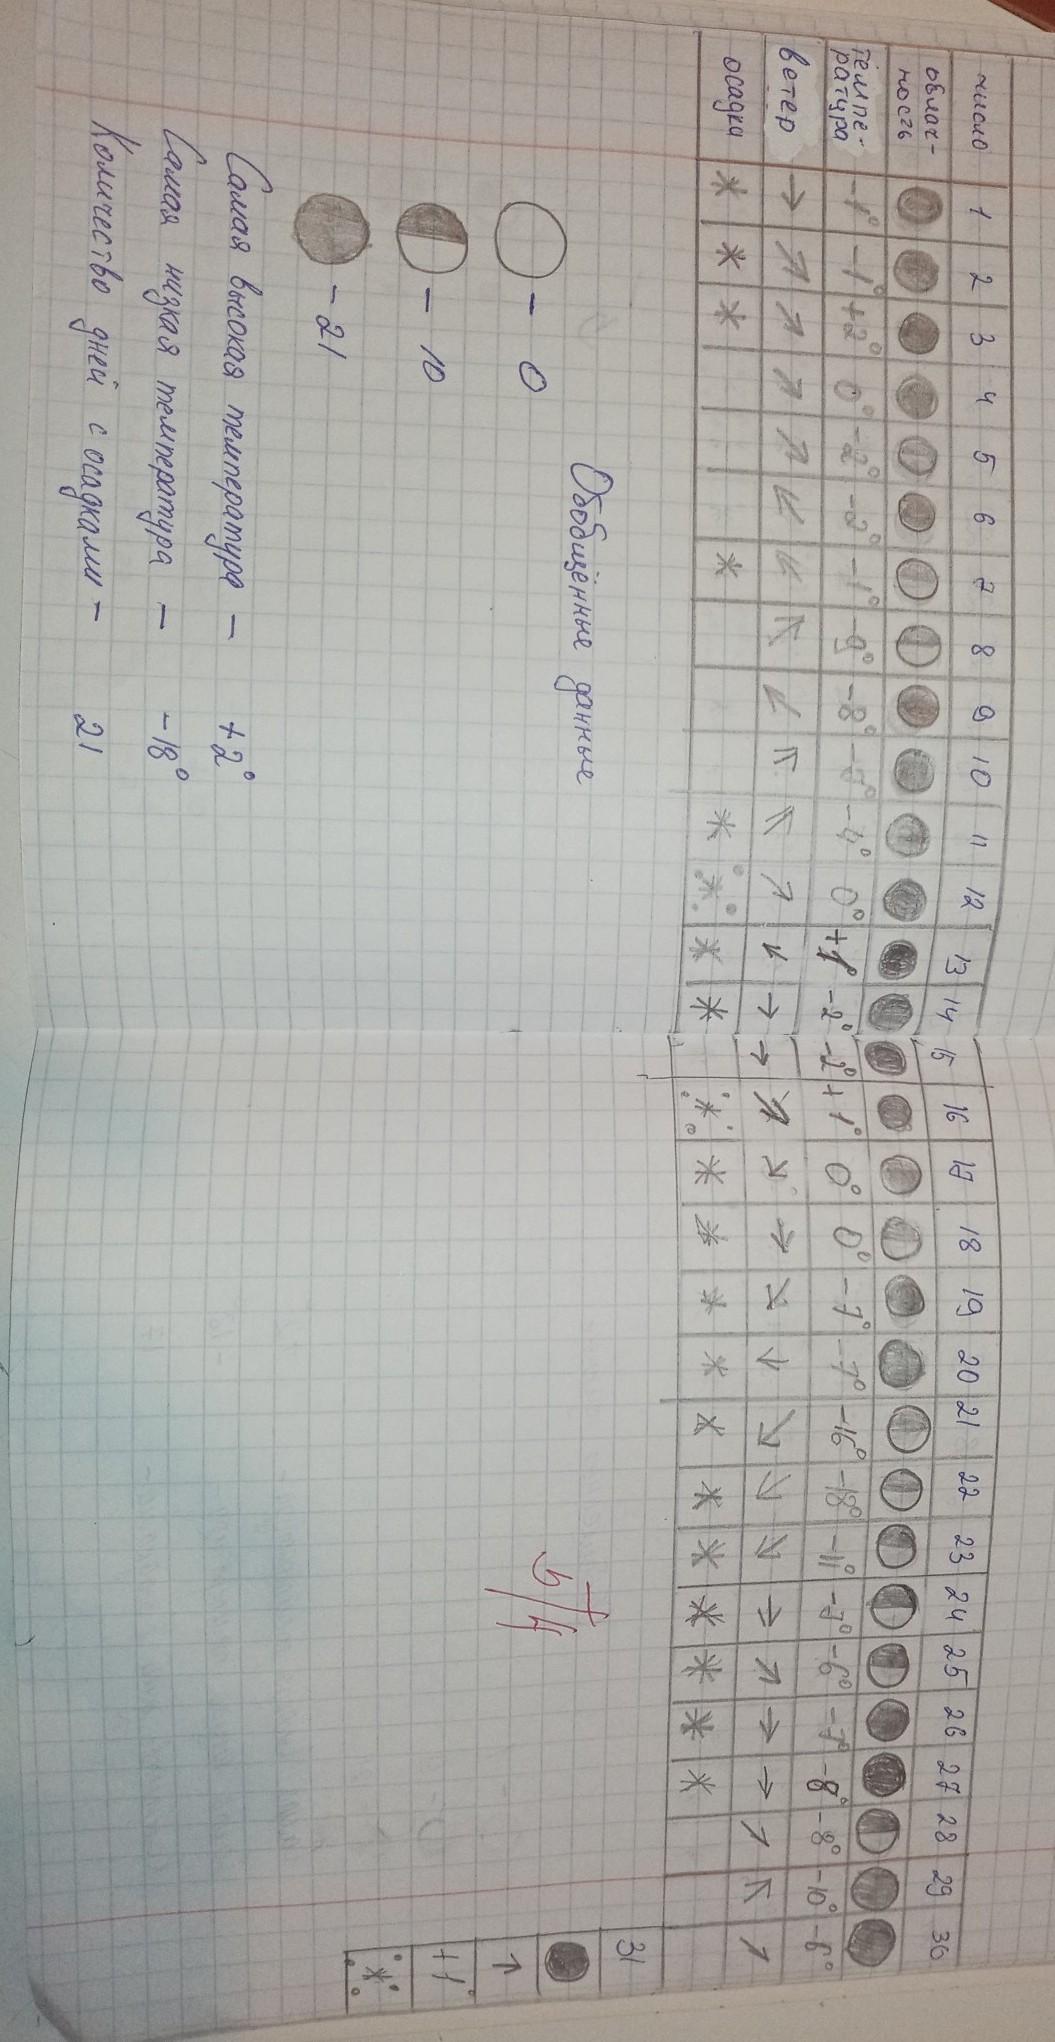 число 1 2 3 4 5 6 7 8 9 10 11 12 13 14 15 16 17 18 19 20 21 22 23 24 25 26 27 28 29 30
облач-
ность
темпе-
ратура -1° -1° +2° 0° -2° -2° -1° -9° -8° -4° 0° +1° -2° -2° +1° 0° 0° -7° -7° -16° -18° -11° -7° -6° -7° -8° -8° -10° -6°
ветер
осадки
31
+1°
Обобщённые данные
- 0
- 10
- 21
Самая высокая температура - +2°
Самая низкая температура - -18°
Количество дней с осадками - 21